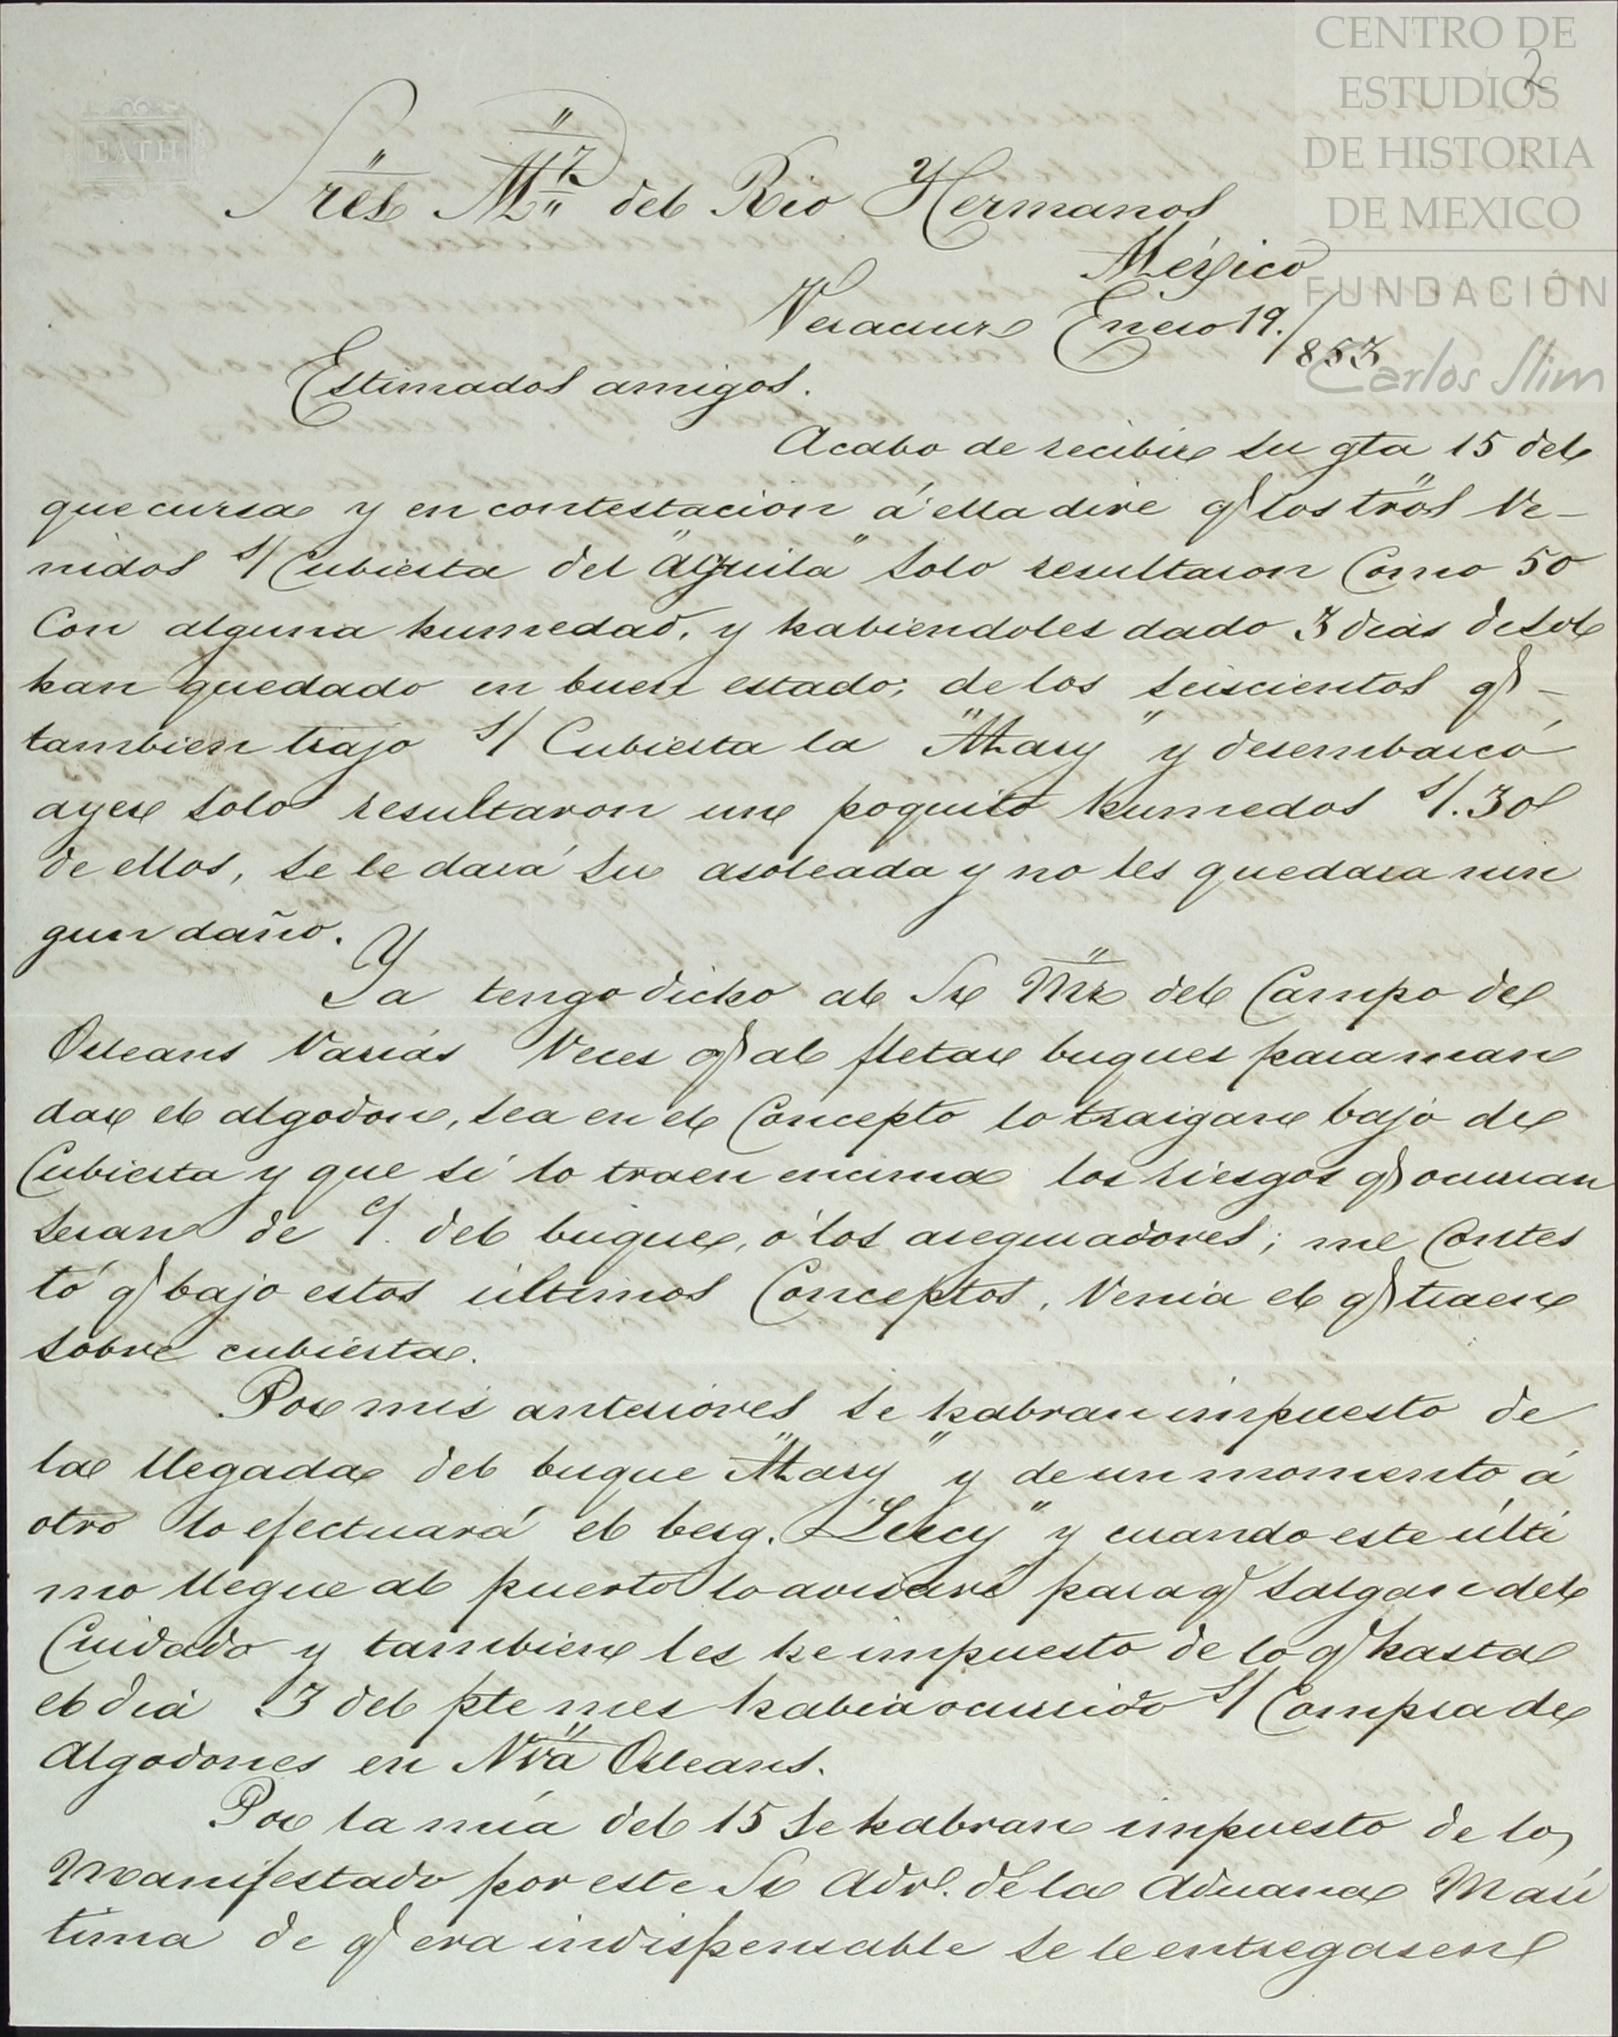 CENTRO DE
ESTUDIOS
DE HISTORIA
DE MEXICO
FUNDACIÓN
Carlos Slim
2
BATH
Sres Mz del Rio Hermanos
México
Veracruz Enero 19./853
Estimados amigos.
Acabo de recibir su gta 15 del
que cursa y en contestacion á ella dire q los tros Ve-
nidos s/ Cubierta del "aguila" solo resultaron Como 50
Con alguna humedad, y habiendoles dado 3 dias de sol
han quedado en buen estado; de los seiscientos q -
tambien trajo s/ Cubierta la "Mary" y desembarcó
ayer solo resultaron un poquito humedos s/. 30
de ellos, se le dará su asoleada y no les quedara nin
gun daño.
Ya tengo dicho al Sr Mrz del Campo de
Orleans Varias Veces q al fletar buques para man
dar el algodon, sea en el Concepto lo traigan bajo de
Cubierta y que si lo traen encima los riesgos q ocurran
seran de c/. del buque, ó los aseguradores; me Contes
tó q bajo estos ultimos Conceptos, Venia el q traen
sobre cubierta.
Por mis anteriores se habran impuesto de
la llegada del buque "Mary" y de un momento á
otro lo efectuará el berg. "Lucy" y cuando este ulti
mo llegue al puerto lo avisaré para q salgan del
Cuidado y tambien les he impuesto de lo q hasta
el dia 3 del pte mes habia ocurrido s/ Compra de
Algodones en Nva Orleans.
Por la mia del 15 se habran impuesto de lo
manifestado por este Sr Adr. de la Aduana Mari
tima de q era indispensable se le entregasen